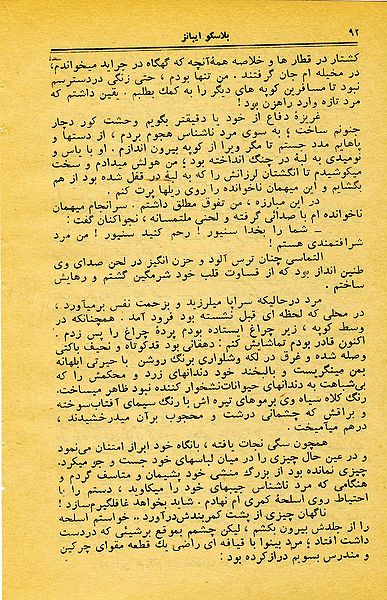 ۹۲
بلاسکو ایبانز
کشتار در قطار ها و خلاصه همهٔآنچه که گهگاه در جراید میخواندم،
در مخیله ام جان گرفتند . من تنها بودم ، حتی زنگی دردسترسم
نبود تا مسافرین کوپه های دیگر را به کمك بطلبم . یقین داشتم که
مرد تازه وارد راهزن بود !
غریزهٔ دفاع از خود یا دقیقتر بگویم وحشت کور دچار
جنونم ساخت ؛ به سوی مرد ناشناس هجوم بردم ، از دستها و
پاهایم مدد جستم تا مگر ویرا از کوپه بیرون اندازم . او با یاس و
نومیدی به لبهٔ در چنگ انداخته بود ؛ من هولش میدادم و سخت
میکوشیدم تا انگشتان لرزانش را که به لبهٔ در قفل شده بود از هم
بگشایم و این میهمان ناخوانده را روی ریلها پرت کنم .
در این مبارزه ، من تفوق مطلق داشتم . سرانجام میهمان
ناخوانده ام با صدائی گرفته و لحنی ملتمسانه ، نجواکنان گفت :
ــ شما را بخدا سنیور ! رحم کنید سنیور ! من مرد
شرافتمندی هستم !
التماسی چنان ترس آلود و حزن انگیز در لحن صدای وی
طنین انداز بود که از قساوت قلب خود شرمگین گشتم و رهایش
ساختم .
مرد درحالیکه سراپا میلرزید و بزحمت نفس برمیآورد ،
در محلی که لحظه ای قبل نشسته بود فرود آمد . همچنانکه در
وسط کوپه ، زیر چراغ ایستاده بودم پردهٔ چراغ را پس زدم .
اکنون قادر بودم تماشایش کنم : دهقانی بود قدکوتاه و نحیف باکتی
وصله شده و غرق در لکه وشلواری برنگ روشن با حیرتی ابلهانه
بمن مینگریست و بالبخند خود دندانهای زرد و محکمش را که
بی‌شباهت به دندانهای حیوانات نشخوار کننده نبود ظاهر میساخت.
رنگ کلاه سیاه وی برموهای تیره اش با رنگ سیمای آفتاب‌سوخته
و براقش که چشمانی درشت و محجوب برآن میدرخشیدند ،
درهم میآمیخت .
همچون سگی نجات یافته ، بانگاه خود ابراز امتنان می‌نمود
و در عین حال چیزی را در میان لباسهای خود جست و جو میکرد.
چیزی نمانده بود از بزرگ منشی خود پشیمان و متاسف گردم و
هنگامی که مرد ناشناس جیبهای خود را میکاوید ، دستم را با
احتیاط روی اسلحهٔ کمری ام نهادم . شاید بخواهد غافلگیرم‌سازد !
ناگهان چیزی از پشت کمربندش‌درآورد .. خواستم اسلحه
را از جلدش بیرون بکشم ، لیکن چشمم بموقع برشیئی که دردست
داشت افتاد ؛ مرد بینوا با قیافه ای راضی یك قطعه مقوای چرکین
و مندرس بسویم درازکرده بود :